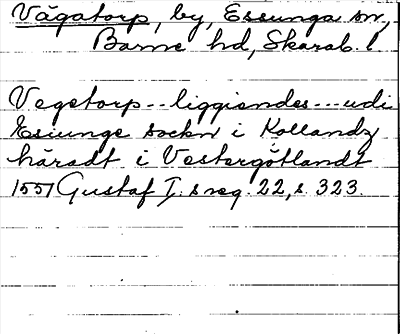 Vågatorp, by, Essunga sn,
Barne hd, Skarab. l
Vegetorp -- liggiandes --- udi
Esiunge sockn i Kollandz
häradt i Vestergötlandt
1551 Gustaf I:s reg. 22, s. 323.